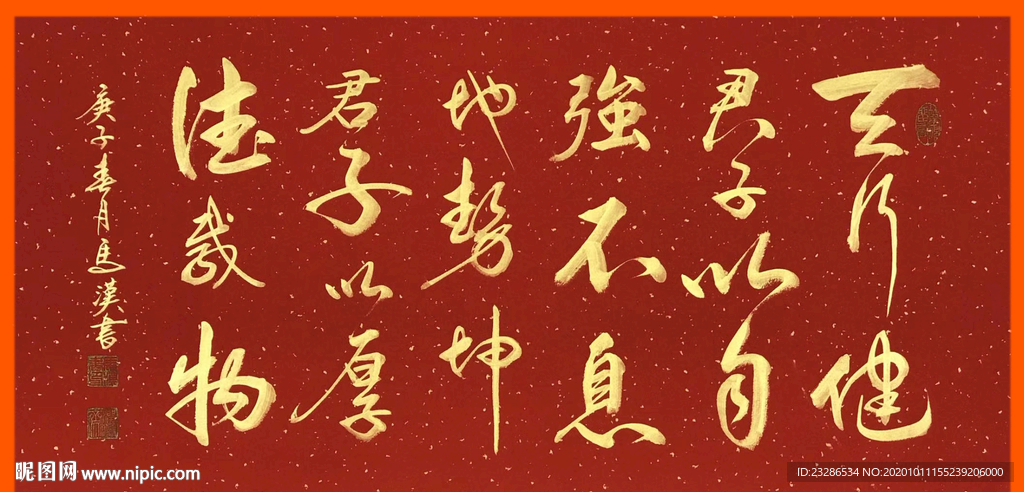 天行健
君子以自
強不息
地勢坤
君子以厚
德载物
庚子春月馬漢書
昵图网 www.nipic.com
ID:23286534 NO:20201011155239206000